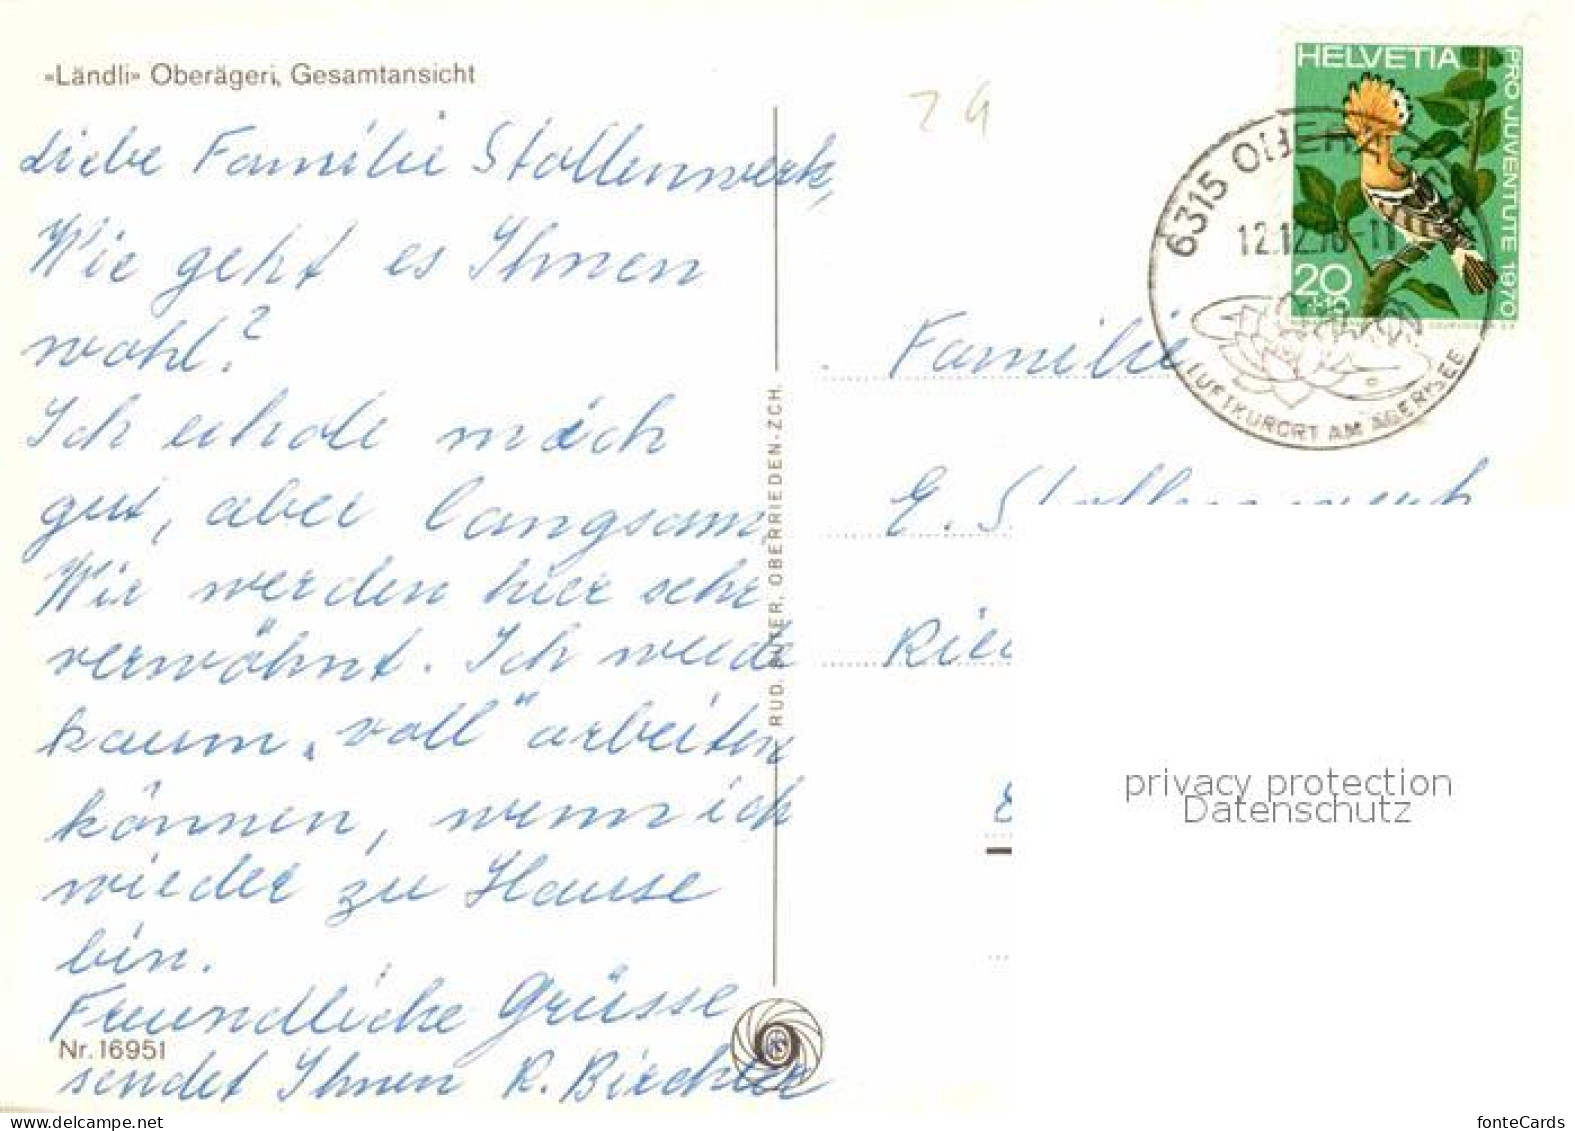 «Ländli» Oberägeri, Gesamtansicht
Liebe Familie Stollenwerk,
Wie geht es Ihnen
wohl?
Ich erhole mich
gut, aber langsam.
Wir werden hier sehr
verwöhnt. Ich werde
kaum „voll“ arbeiten
können, wenn ich
wieder zu Hause
bin.
Freundliche Grüsse
sendet Ihnen R. Birchler
Nr. 16951
RUD. SUTER, OBERRIEDEN-ZCH.
HELVETIA
PRO JUVENTUTE 1970
20
+10
6315 OBERÄGERI
12.12.70-11
LUFTKURORT AM ÄGERISEE
Familie
E. Stollenwerk
privacy protection
Datenschutz
fonteCards